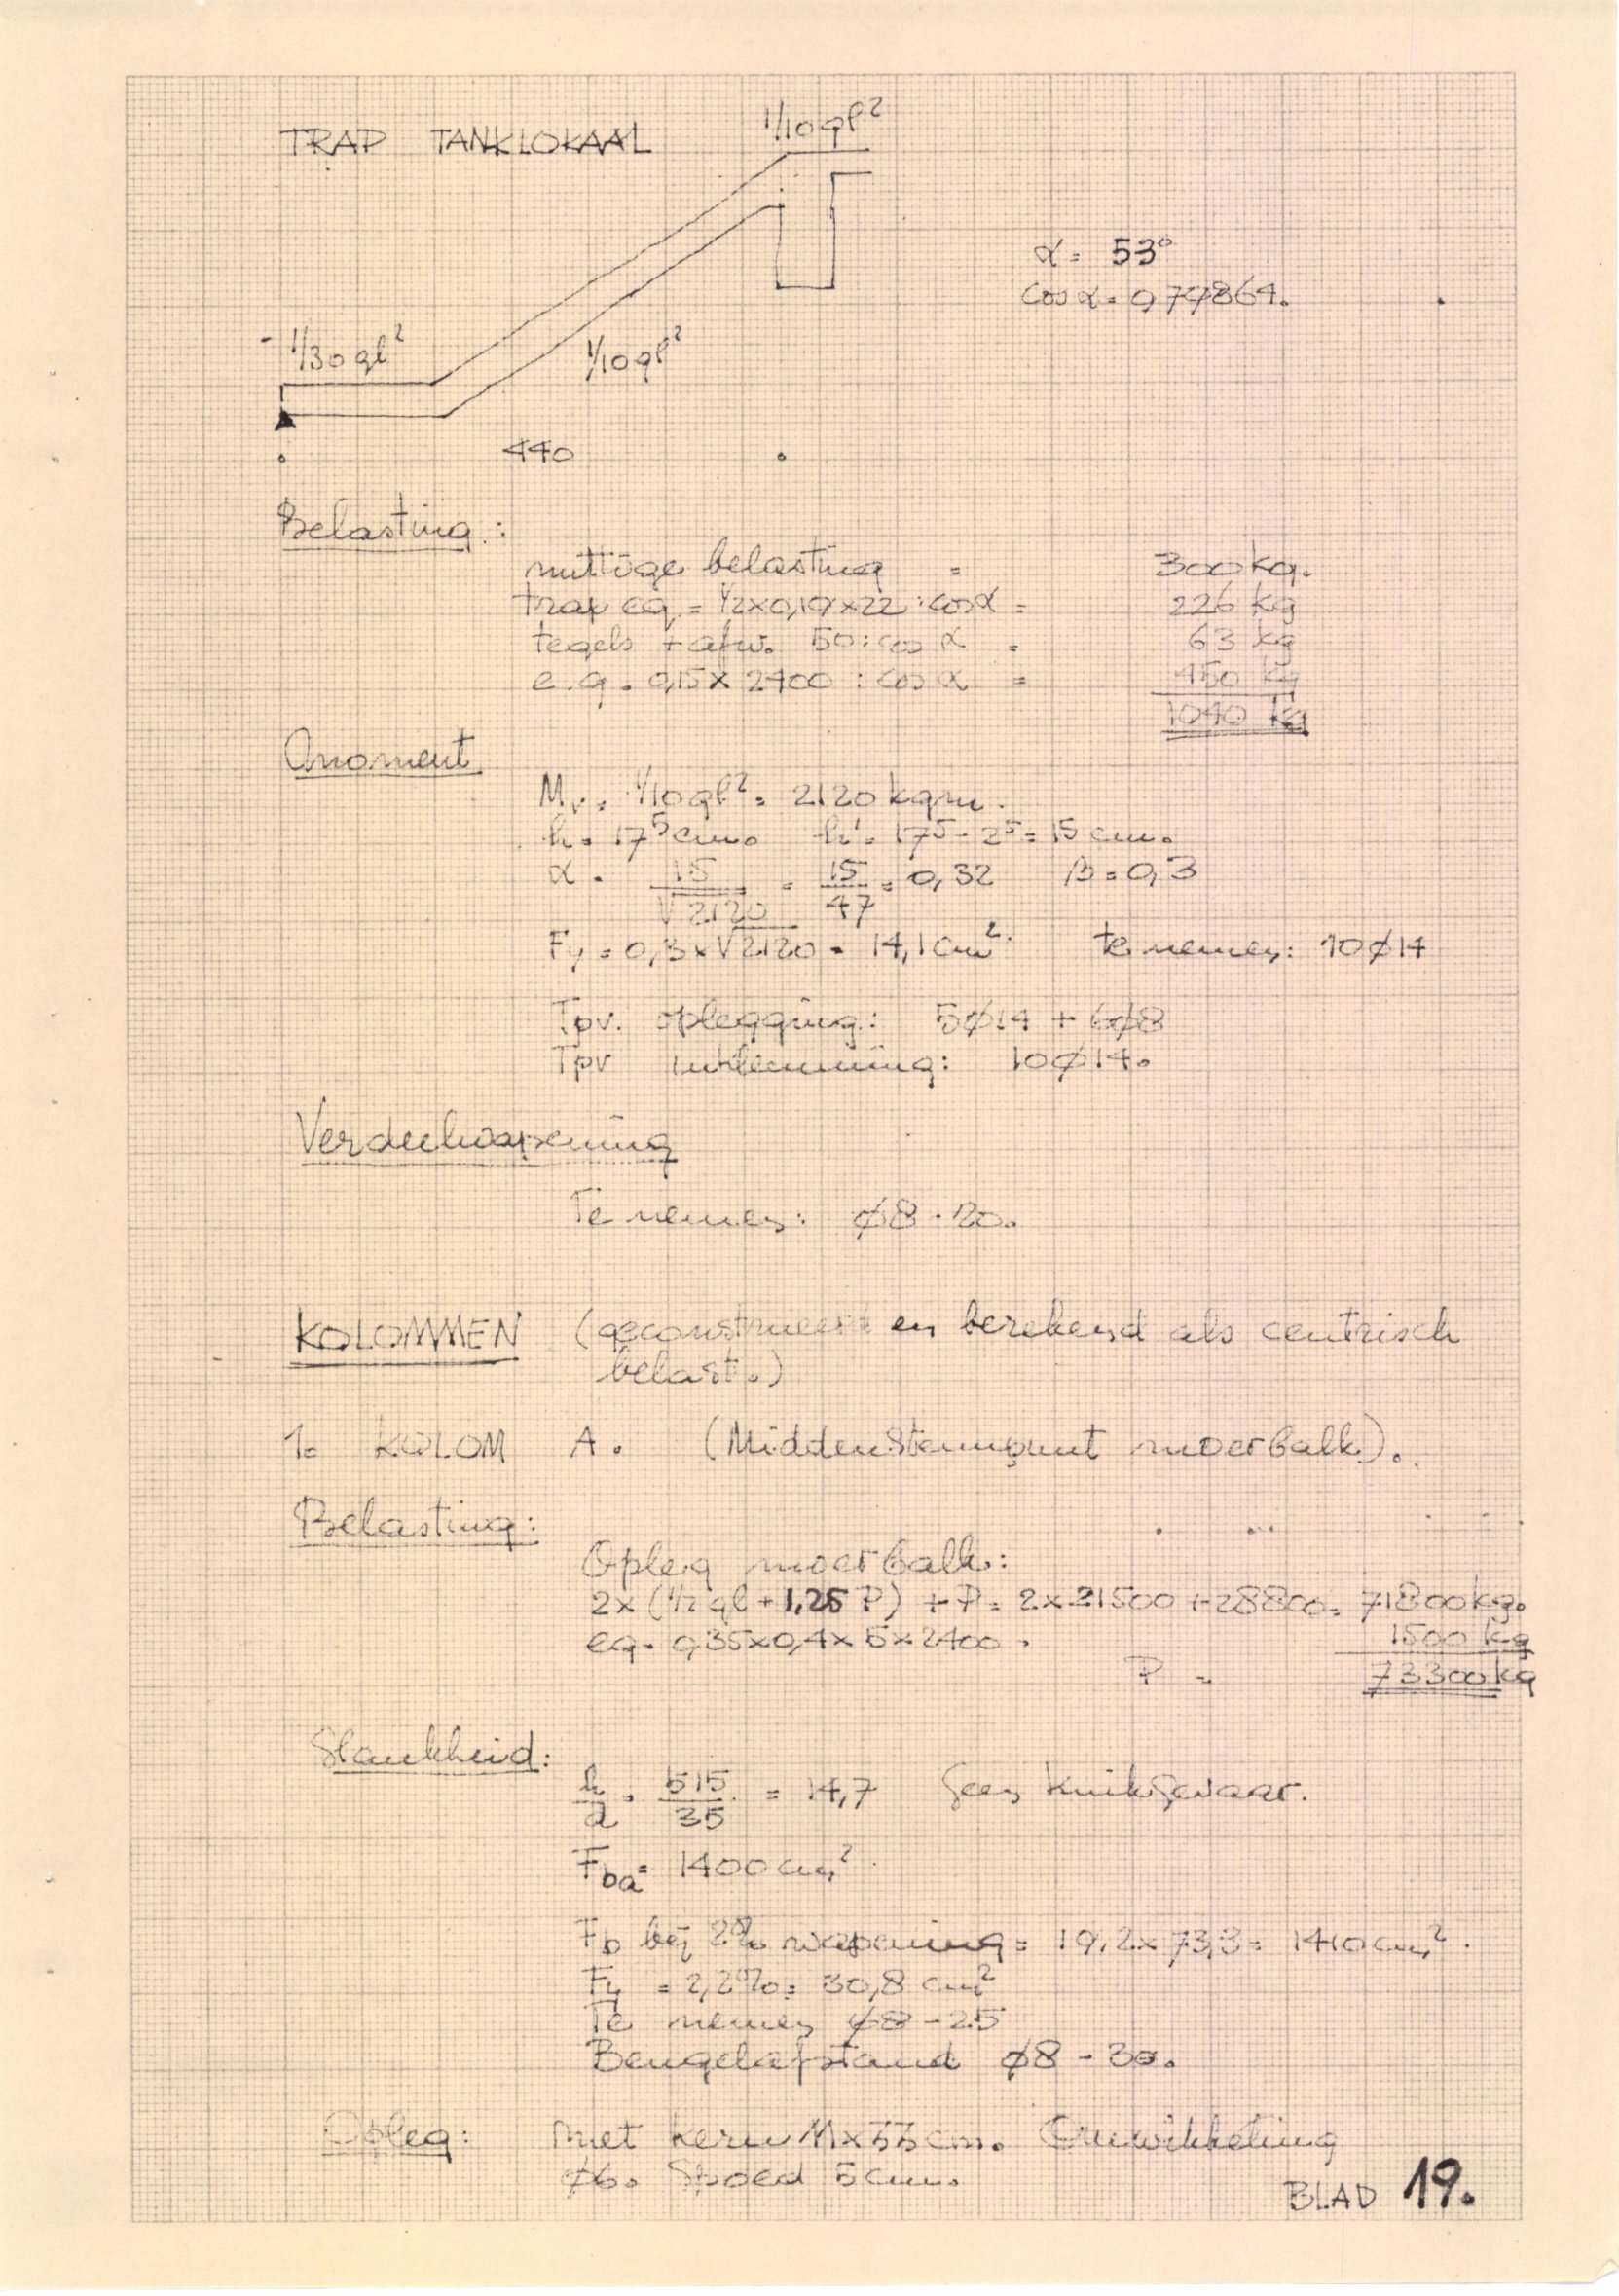 TRAP TANKLOKAAL
1/10 ql²
α = 53°
cos α = 0,79864.
1/30 ql²
1/10 ql²
440
Belasting:
nuttige belasting = 300 kg.
trap eg. = 1/2 x 0,19 x 22 : cos α = 226 kg
tegels + afw. 50 : cos α = 63 kg
e.g. 0,15 x 2400 : cos α = 450 kg
1040 kg
Moment
Mv = 1/10 ql² = 2120 kgm.
h = 17⁵ cm. h' = 17⁵ - 2⁵ = 15 cm.
α = 15/√2120 = 15/47 = 0,32 β = 0,3
Fy = 0,3 x √2120 = 14,1 cm² te nemen: 10ø14
Tpv. oplegging: 5ø14 + 6ø8
Tpv inklemming: 10ø14.
Verdeelwapening
Te nemen: ø8 - 20.
KOLOMMEN (geconstrueerd en berekend als centrisch
belast.)
1. KOLOM A. (Middensteunpunt moerbalk).
Belasting:
Opleg moerbalk:
2x (1/2 ql + 1,25 P) + P = 2 x 21500 + 28800 = 71800 kg.
eg. 0,35 x 0,4 x 5 x 2400 = 1500 kg
P = 73300 kg
Slankheid:
h/a = 515/35 = 14,7 Geen knikgevaar.
Fba = 1400 cm²
Fb bij 2% wapening = 19,2 x 73,3 = 1410 cm².
Fy = 2,2% = 30,8 cm²
Te nemen ø8 - 25
Beugelafstand ø8 - 30.
Opleg: met kern 11x33 cm. Omwikkeling
ø6. Spoed 5 cm.
BLAD 19.